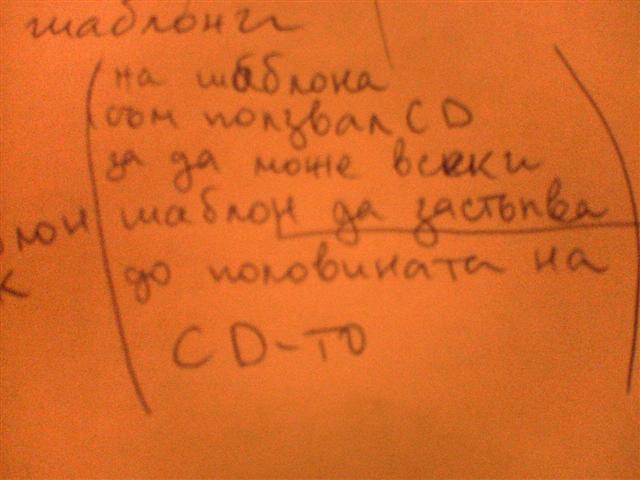 шаблони
на шаблона
съм ползвал CD
за да може всеки
шаблон да застъпва
до половината на
CD-то